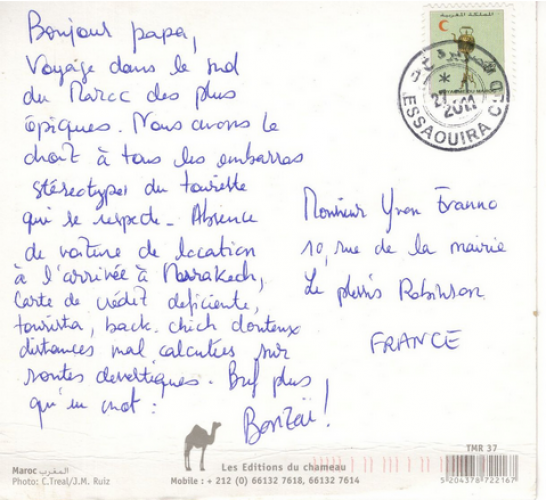 Bonjour papa,
Voyage dans le sud
du Maroc des plus
épiques. Nous avons le
droit à tous les embarras
stéréotypes du touriste
qui se respecte - Absence
de voiture de location
à l'arrivée à Marrakech,
Carte de crédit deficiente,
tourista, back-chich douteux
distances mal calculées sur
routes . Bref plus
qu'un mot :
Banzaï !
المملكة المغربية
27
2011
ESSAOUIRA C.D
Monsieur Yvon
10, rue de la mairie
Le plessis Robinson
FRANCE
Maroc المغرب
Photo: C.Treal/J.M. Ruiz
Les Editions du chameau
Mobile : + 212 (0) 66132 7618, 66132 7614
TMR 37
5 204378 722167